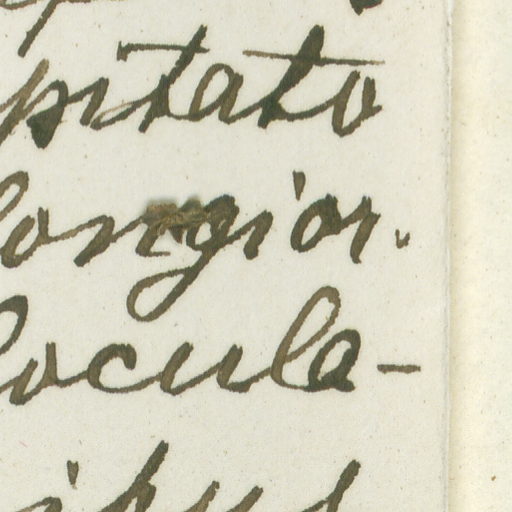 pitato
longior.
locula-